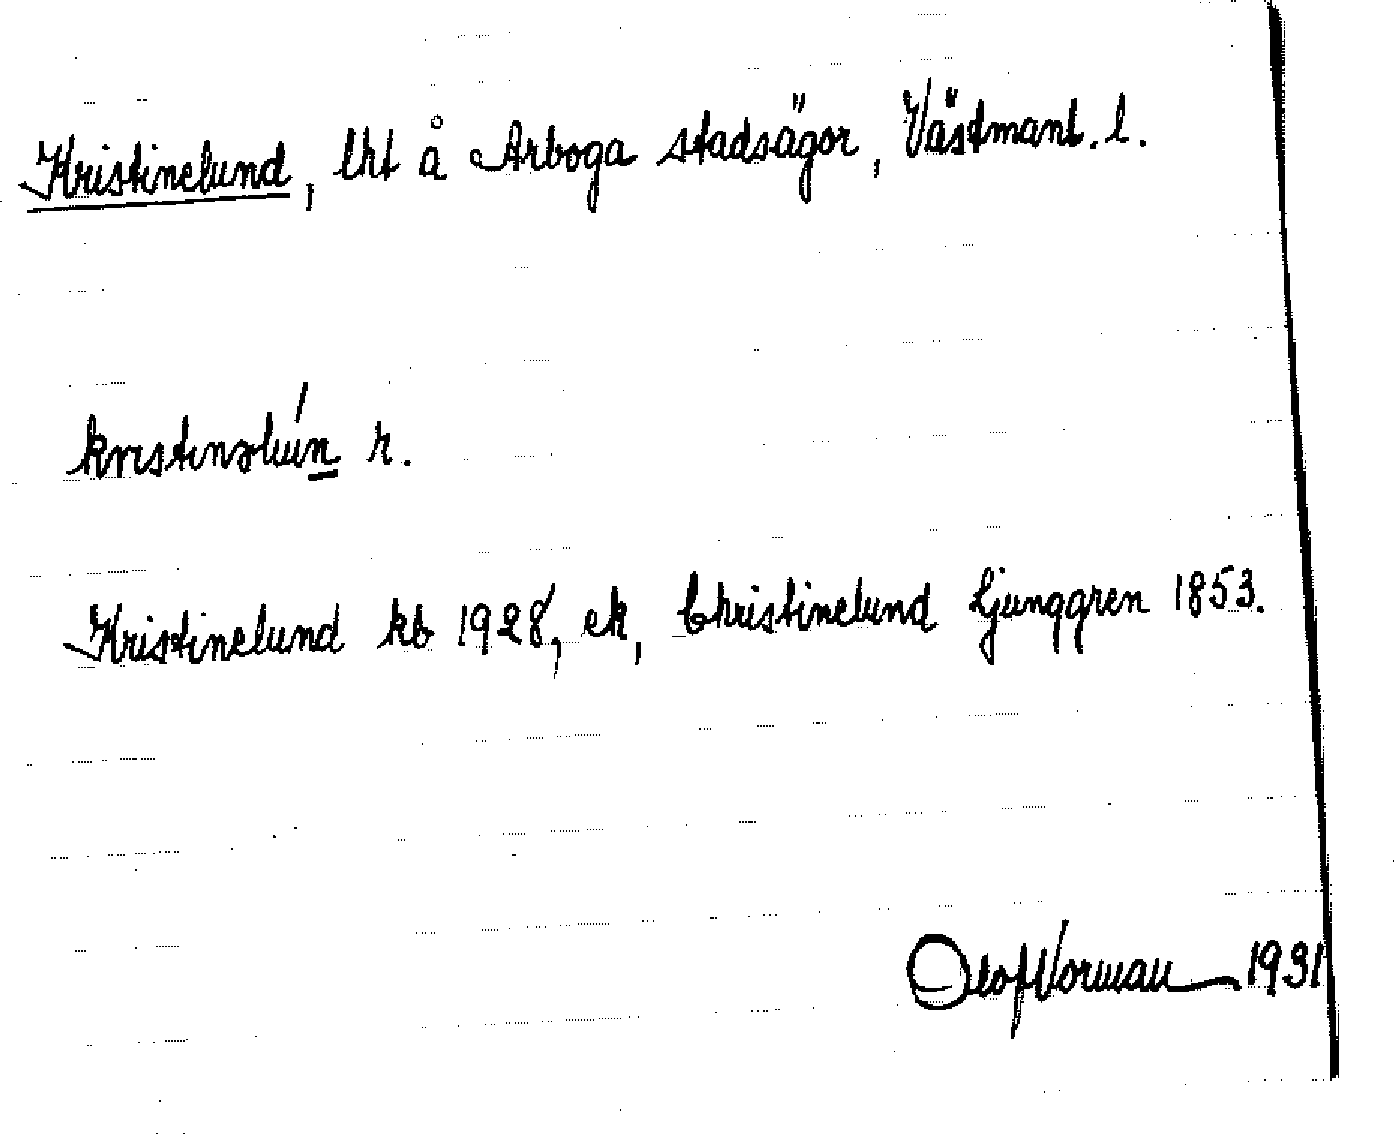 Kristinelund, lht å Arboga stadsägor, Västmanl. l.
kristinəlún h.
Kristinelund kb 1928, ek, Christinelund Ljunggren 1853.
Olof Vorman 1931